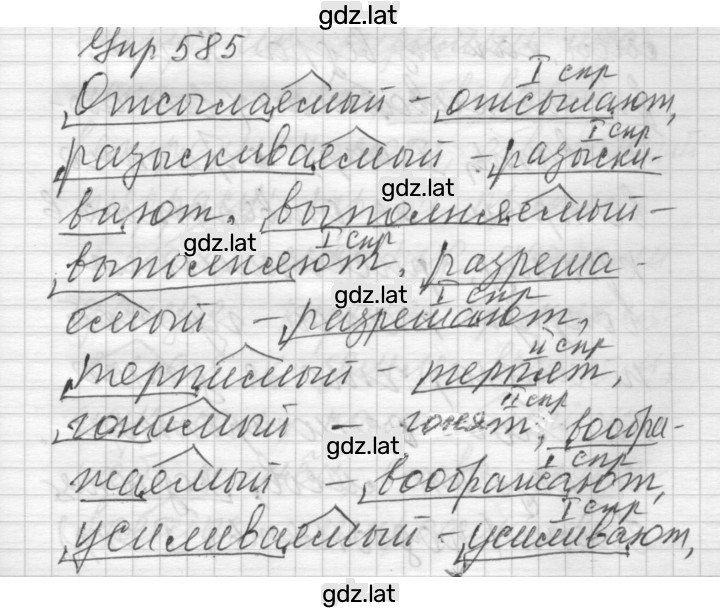 gdz.lat
Упр 585
I спр
Отсылаемый - отсылают,
I спр
разыскиваемый - разыски-
gdz.lat
вают, выполняемый -
gdz.lat
I спр
выполняют, разреша-
gdz.lat
I спр
емый - разрешают,
II спр
терпимый - терпят,
II спр
гонимый - гонят, вообра-
gdz.lat
I спр
жаемый - воображают,
I спр
усиливаемый - усиливают,
gdz.lat